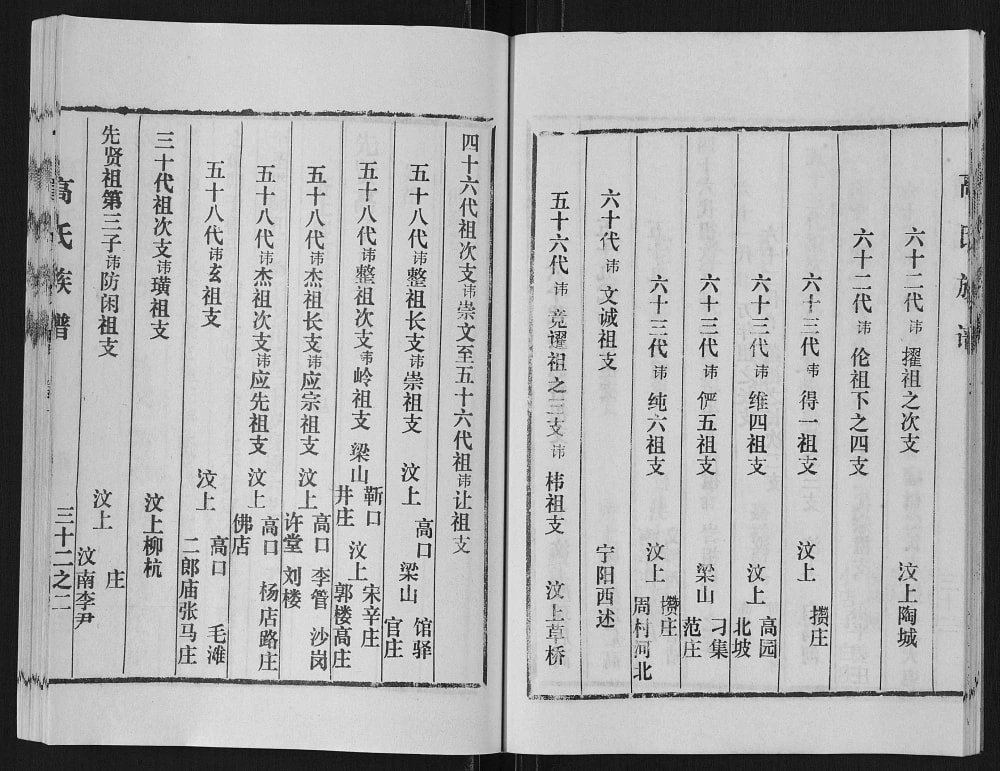 高氏族谱
六十二代讳擢祖之次支 汶上陶城
六十二代讳伦祖下之四支
六十三代讳得一祖支 汶上 攒庄
六十三代讳维四祖支 汶上 高园 北坡
六十三代讳俨五祖支 梁山 刁集 范庄
六十三代讳纯六祖支 汶上 攒庄 周村河北
六十代讳文诚祖支 宁阳西述
五十六代讳竞擢祖之三支讳祎祖支 汶上草桥
四十六代祖次支讳崇文至五十六代祖讳让祖支
五十八代讳整祖长支讳崇祖支 汶上 高口 梁山 馆驿 官庄
五十八代讳整祖次支讳岭祖支 梁山 靳口 井庄 汶上 宋辛庄 郭楼高庄
五十八代讳杰祖长支讳应宗祖支 汶上 高口 李管 沙岗 许堂 刘楼
五十八代讳杰祖次支讳应先祖支 汶上 高口 杨店路庄 佛店
五十八代讳玄祖支 汶上 高口 毛滩 二郎庙张马庄
三十代祖次支讳璜祖支 汶上柳杭
先贤祖第三子讳防闲祖支 汶上 庄 汶南李尹
高氏族谱 三十二之二